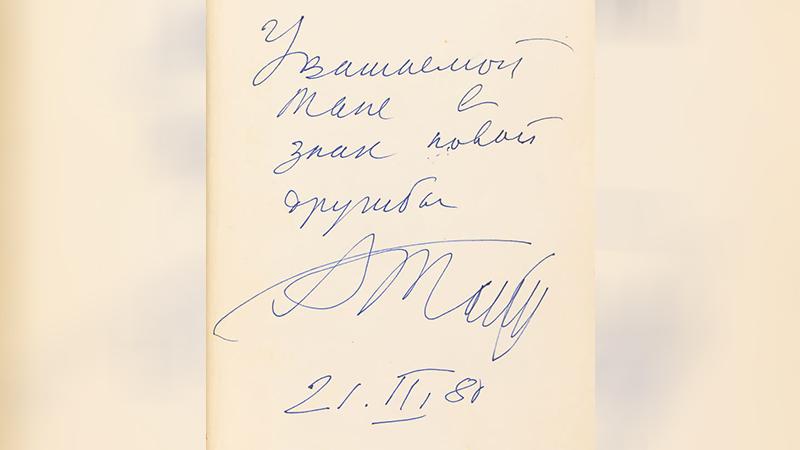 Уважаемой
Тане в
знак новой
дружбы
21.III 80